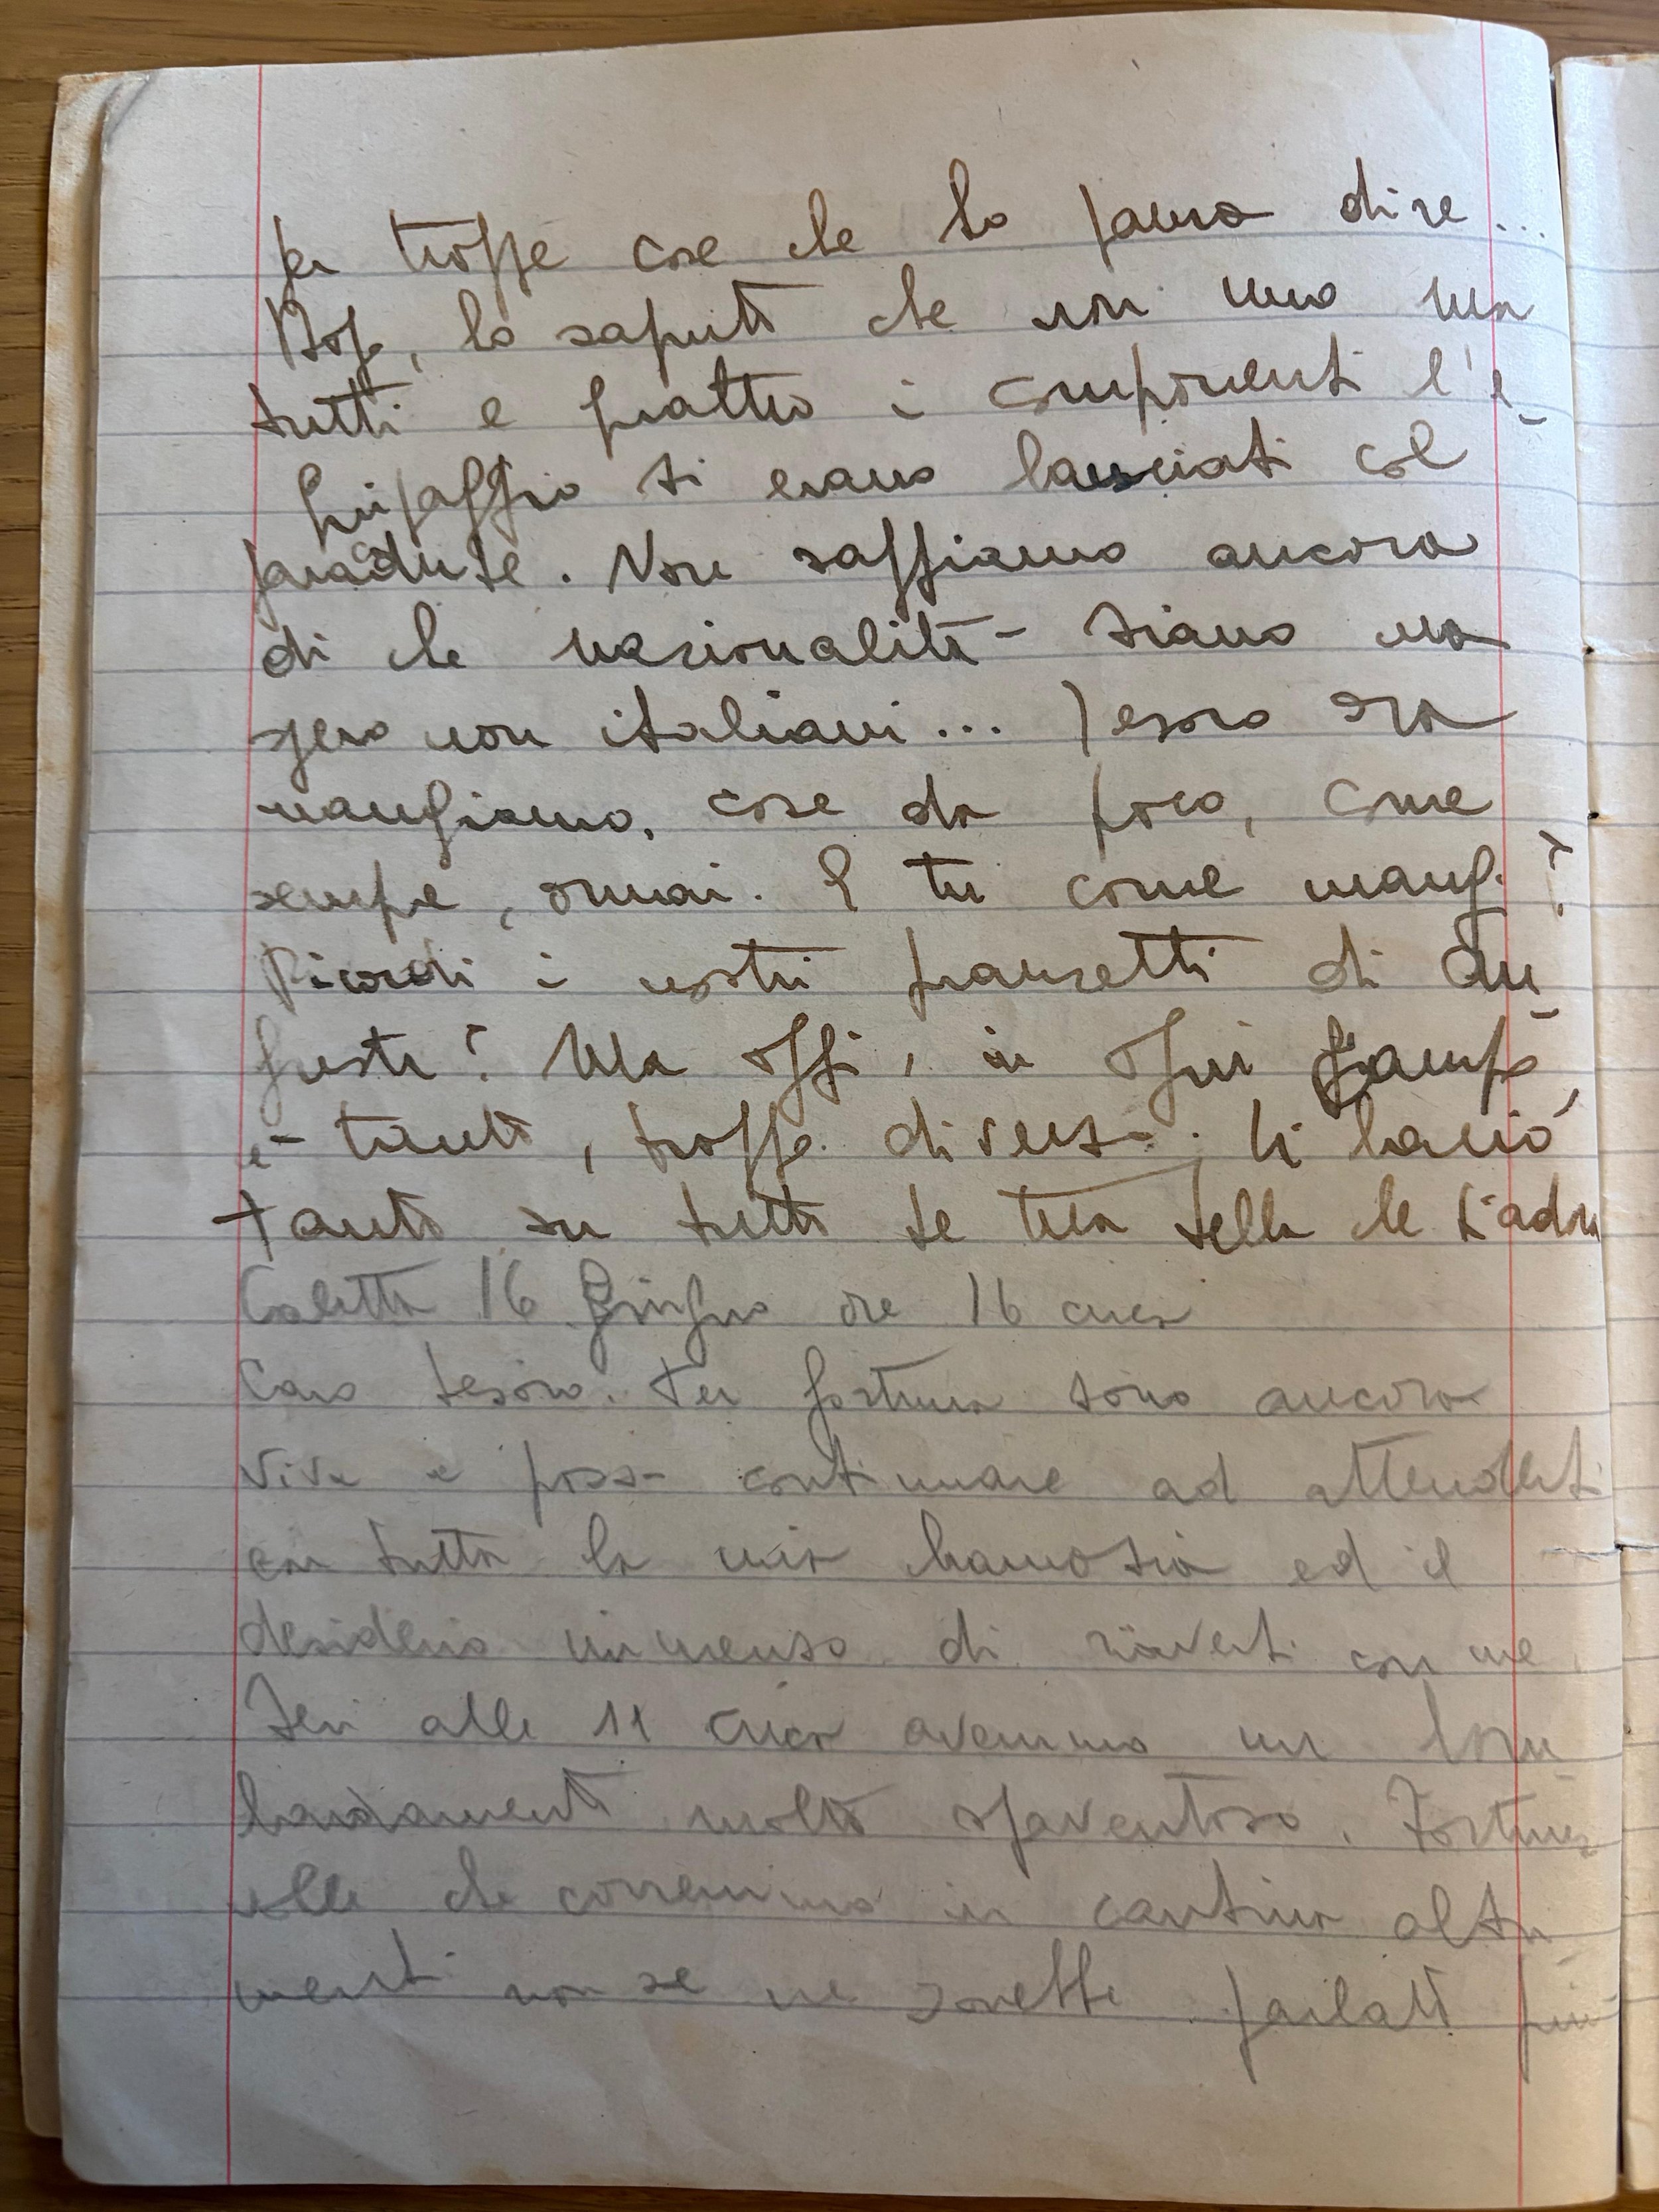 per troppe cose che ho paura dire...
Dopo, ho saputo che non uno ma
tutti e quattro i componenti l'e-
quipaggio si erano lanciati col
paracadute. Non sappiamo ancora
di che nazionalità siano ma
spero non italiani... Tesoro ora
mangiamo, cose da poco, come
sempre, ormai. E tu come mangi?
Ricordi i nostri pranzetti di Au-
gusta? Ma oggi, in ogni campo,
è tanto, troppo diverso. Ti bacio
tanto su tutto te tua Lella che t'adora
Caletta 16 Giugno ore 16 circa
Caro tesoro. Per fortuna sono ancora
viva e posso continuare ad attenderti
con tutta la mia bramosia ed il
desiderio immenso di riaverti con me.
Ieri alle 11 circa avemmo un bom-
bardamento molto spaventoso. Fortuna
volle che corremmo in cantina altri
menti non se ne sarebbe parlato più